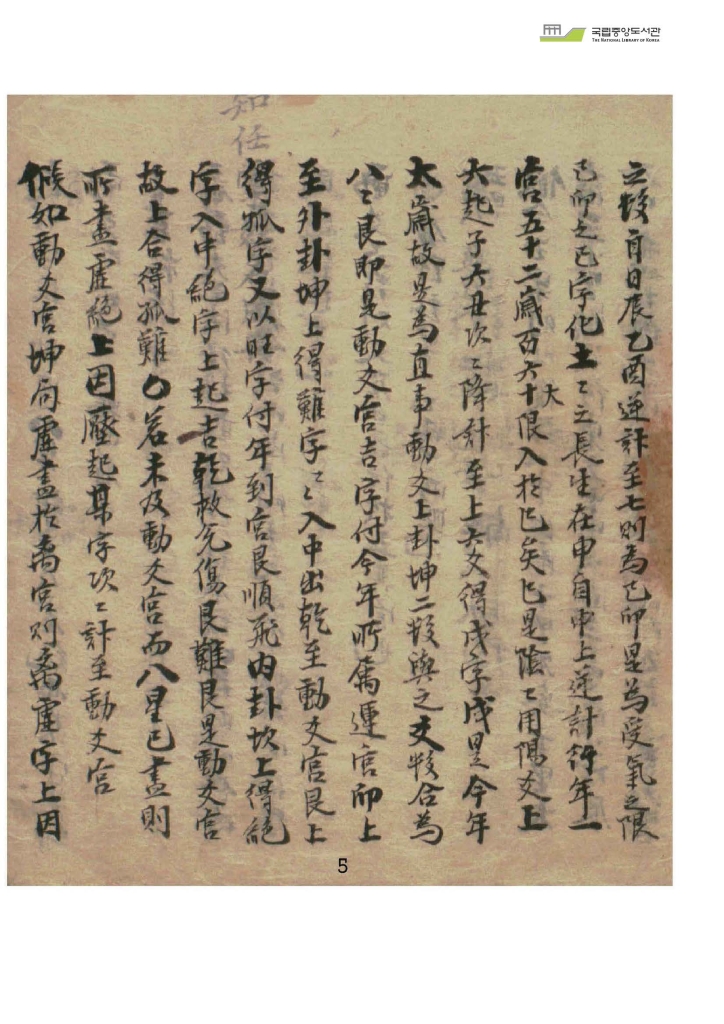 국립중앙도서관
THE NATIONAL LIBRARY OF KOREA
知任
之數盲日辰乙酉逆計至七則為己卯是為受氣之限
己卯之己字化土土之長生在申自申上逆計行年一
宮五十二歲百六十大限入於巳矣巳是陰陰用陽爻上
六起子六丑次次降計至上六爻得戌字戌是今年
太歲故是為直事動爻上卦坤二數與之爻數合為
八八艮即是動爻宮吉字付今年所屬運宮卯上
至外卦坤上得難字難入中出乾至動爻宮艮上
得孤字又以旺字付年到宮艮順飛內卦坎上得絕
字入中絕字上起吉乾赦兌傷艮難艮是動爻宮
故上合得孤難〇若未及動爻宮而八星已盡則
所盡虛絕上因壓起某字次次計至動爻宮
候如動爻宮坤向虛盡於离宮則离虛字上因
5